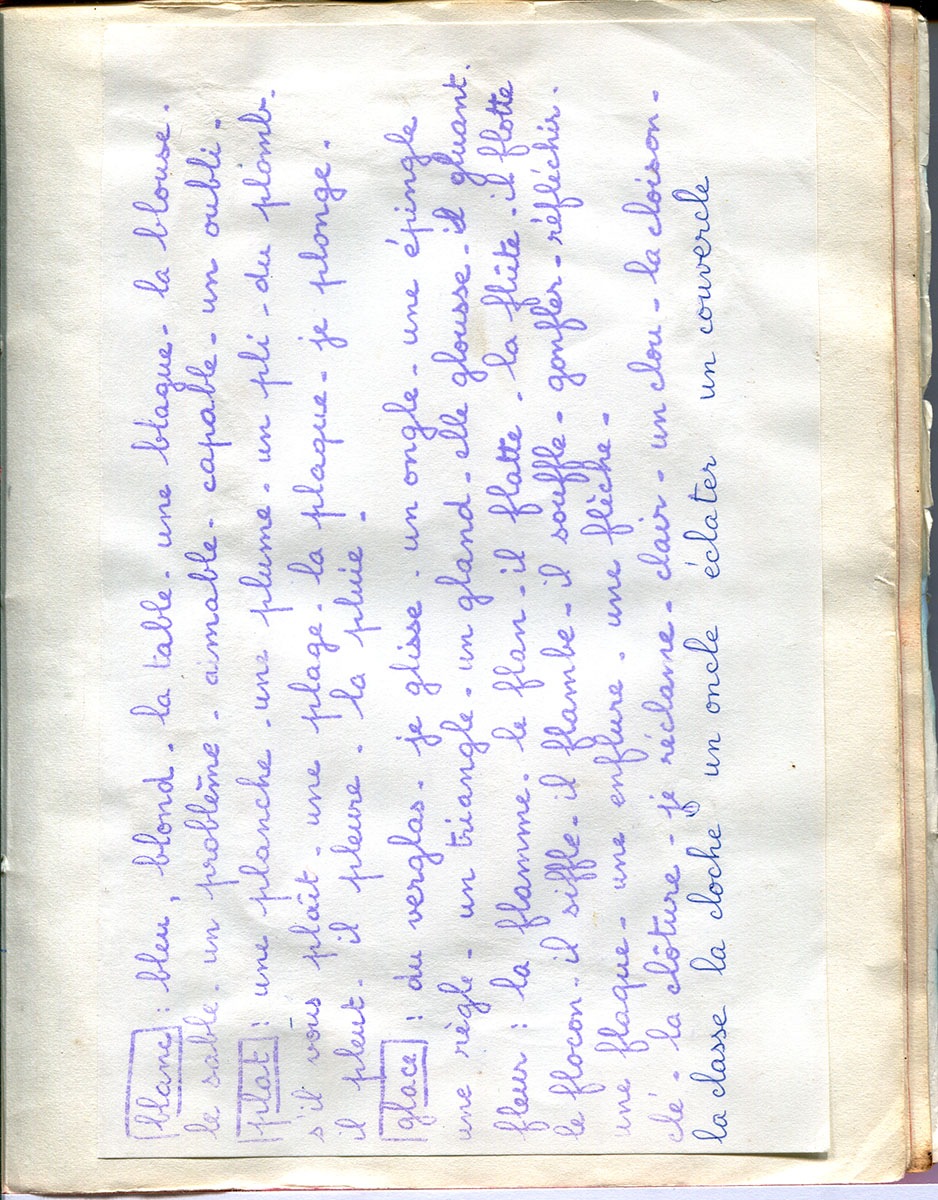 blanc : bleu, blond. la table. une blague. la blouse.
le sable. un problème. aimable. capable. un oubli.
plat : une planche. une plume. un pli. du plomb.
s'il vous plaît. une plage. la plaque. je plonge.
il pleut. il pleure. la pluie.
glace : du verglas. je glisse. un ongle. une épingle
une règle. un triangle. un gland. elle glousse. gluant.
fleur : la flamme. le flan. il flatte. la flûte. il flotte
le flocon. il siffle. il flambe. il souffle. gonfler. réfléchir.
une flaque. une enflure. une flèche.
clé. la clôture. je réclame. clair. un clou. la cloison.
la classe la cloche un oncle éclater un couvercle